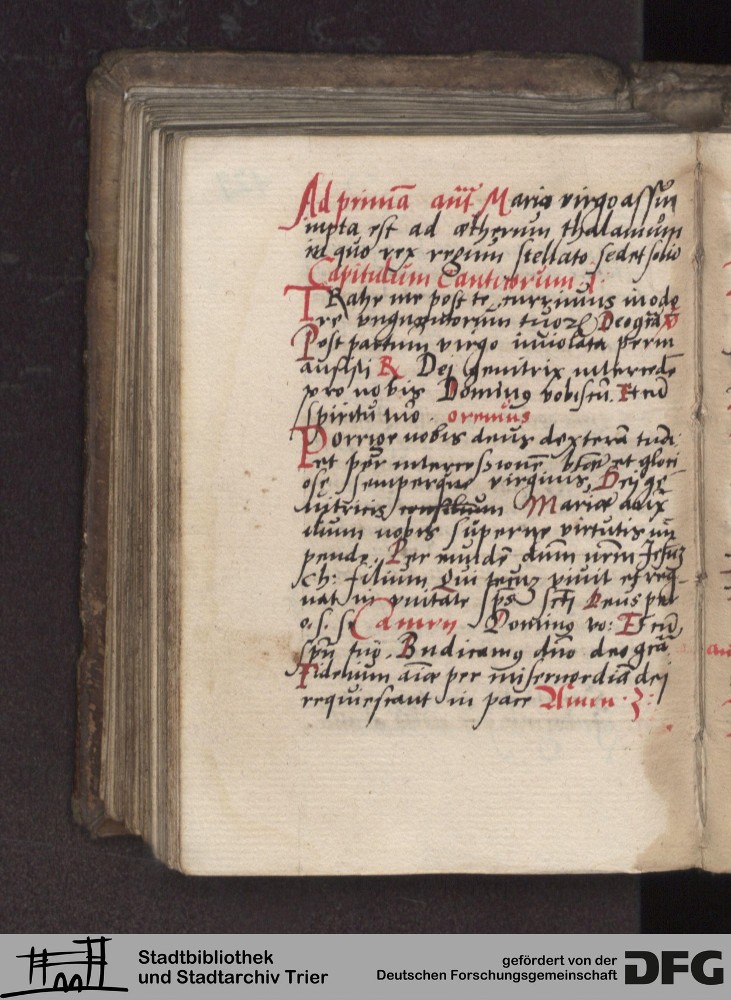 Ad primā añt Maria virgo assūm
mpta est ad ætherium thalamum
in quo rex regum stellato sedet solio
Capitulum Canticorum .I.
TRahe me post te, currimus in odo
re unguentorum tuoꝝ Deo grās
Post partum virgo inviolata perm
ansisti ℟ Dei genitrix intercede
pro nobis Dominus vobiscū. Et cū
spiritu tuo. oremus
Porrige nobis deus dexterā tuā:
et per intercessionē btæ et glori
ose semperque virginis, Dei ge
nitricis Mariæ auxi
lium nobis superne virtutis im
pende. Per eundē dūm nrm Jesuȝ
ch: filium Qui tecuȝ vivit et reg
nat in unitate sps scti Deus per
o. s. se Camen Dominus vo: Et cū
spū tuo. Bndicamus dūo deo grās
Fidelium aīæ per misericordiā dei
requiescant in pace Amen.
Stadtbibliothek
und Stadtarchiv Trier
gefördert von der
Deutschen Forschungsgemeinschaft
DFG